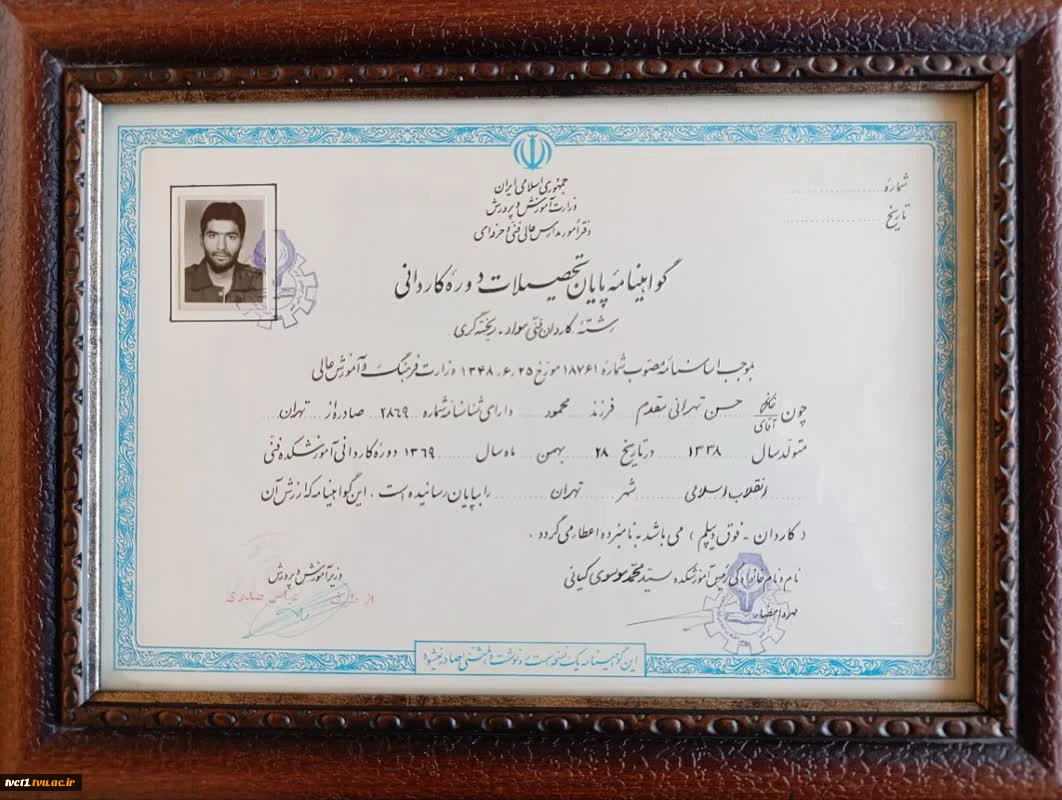 شماره ....................
تاریخ ....................
جمهوری اسلامی ایران
وزارت آموزش و پرورش
دفتر امور مدارس عالی فنی و حرفه‌ای
گواهینامه پایان تحصیلات دوره کاردانی
رشته کاردان فنی مواد - ریخته گری
بموجب اساسنامه مصوب شماره ۱۸۷۶۱ مورخ ۲۵ ر ۶ ر ۱۳۴۸ وزارت فرهنگ و آموزش عالی
چون خانم آقای حسن تهرانی مقدم فرزند محمود دارای شناسنامه شماره ۲۸۶۹ صادره از تهران
متولد سال ۱۳۳۸ در تاریخ ۲۸ بهمن ماه سال ۱۳۶۹ دوره کاردانی آموزشکده فنی
انقلاب اسلامی شهر تهران را بپایان رسانیده است ، این گواهینامه که ارزش آن
( کاردان - فوق دیپلم ) می باشد به نامبرده اعطا می گردد .
نام و نام خانوادگی رئیس آموزشکده سید محمد موسوی کیانی
مهر و امضاء
وزیر آموزش و پرورش
از طرف عباس صدری
این گواهینامه یک نسخه است و رونوشت یا المثنی صادر نمیشود
tvct1.tvu.ac.ir